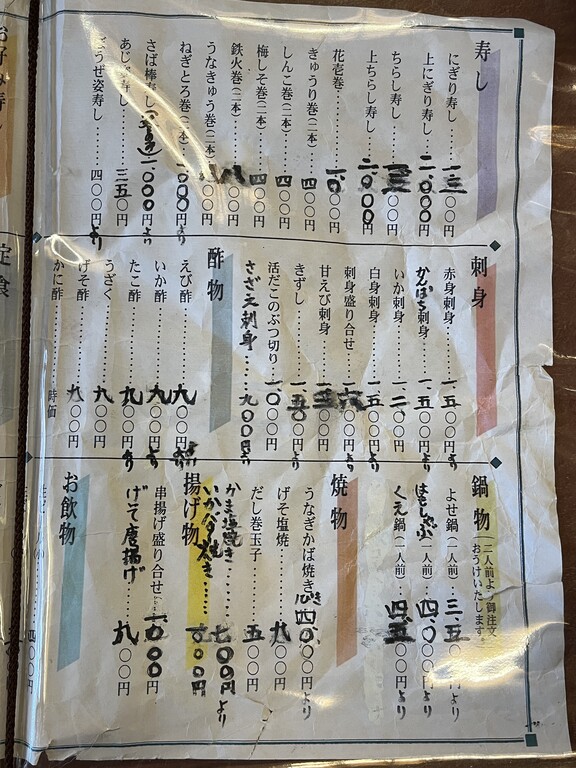 寿し
にぎり寿し………一三〇〇円
上にぎり寿し……二、〇〇〇円
ちらし寿し………〇〇円
上ちらし寿し……二、〇〇〇円
花壱巻………〇〇円
きゅうり巻(二本)……四〇〇円
しんこ巻(二本)……四〇〇円
梅しそ巻(二本)……四〇〇円
鉄火巻(二本)……八〇〇円
うなきゅう巻(二本)……〇〇円
ねぎとろ巻(二本)……円より
さば棒寿し……一、〇〇〇円より
あじ寿し……三五〇円
ぼうぜ姿寿し……四〇〇円より
刺身
赤身刺身………一五〇〇円
かんぱち刺身……一五〇〇円より
いか刺身………一二〇〇円
白身刺身………一五〇〇円より
刺身盛り合せ……〇〇円
甘えび刺身……一三〇〇円
きずし………〇〇円より
活だこのぶつ切り……一〇〇〇円
さざえ刺身……九〇〇円より
酢物
えび酢………九〇〇円
いか酢………九〇〇円より
たこ酢………九〇〇円より
うざく………九〇〇円
げそ酢………九〇〇円
かに酢………時価
鍋物(二人前より御注文、おうけいたします)
よせ鍋(一人前)…三、五〇〇円より
はもしゃぶ(一人前)…四、〇〇〇円より
くえ鍋(一人前)…四、五〇〇円より
焼物
うなぎかば焼き……円より
げそ塩焼………九〇〇円
だし巻玉子………五〇〇円
かま塩焼き………七〇〇円より
焼き………〇〇円
揚げ物
串揚げ盛り合せ……〇〇円
げそ唐揚げ……九〇〇円
お飲物
四〇〇円
お好み寿し
定食